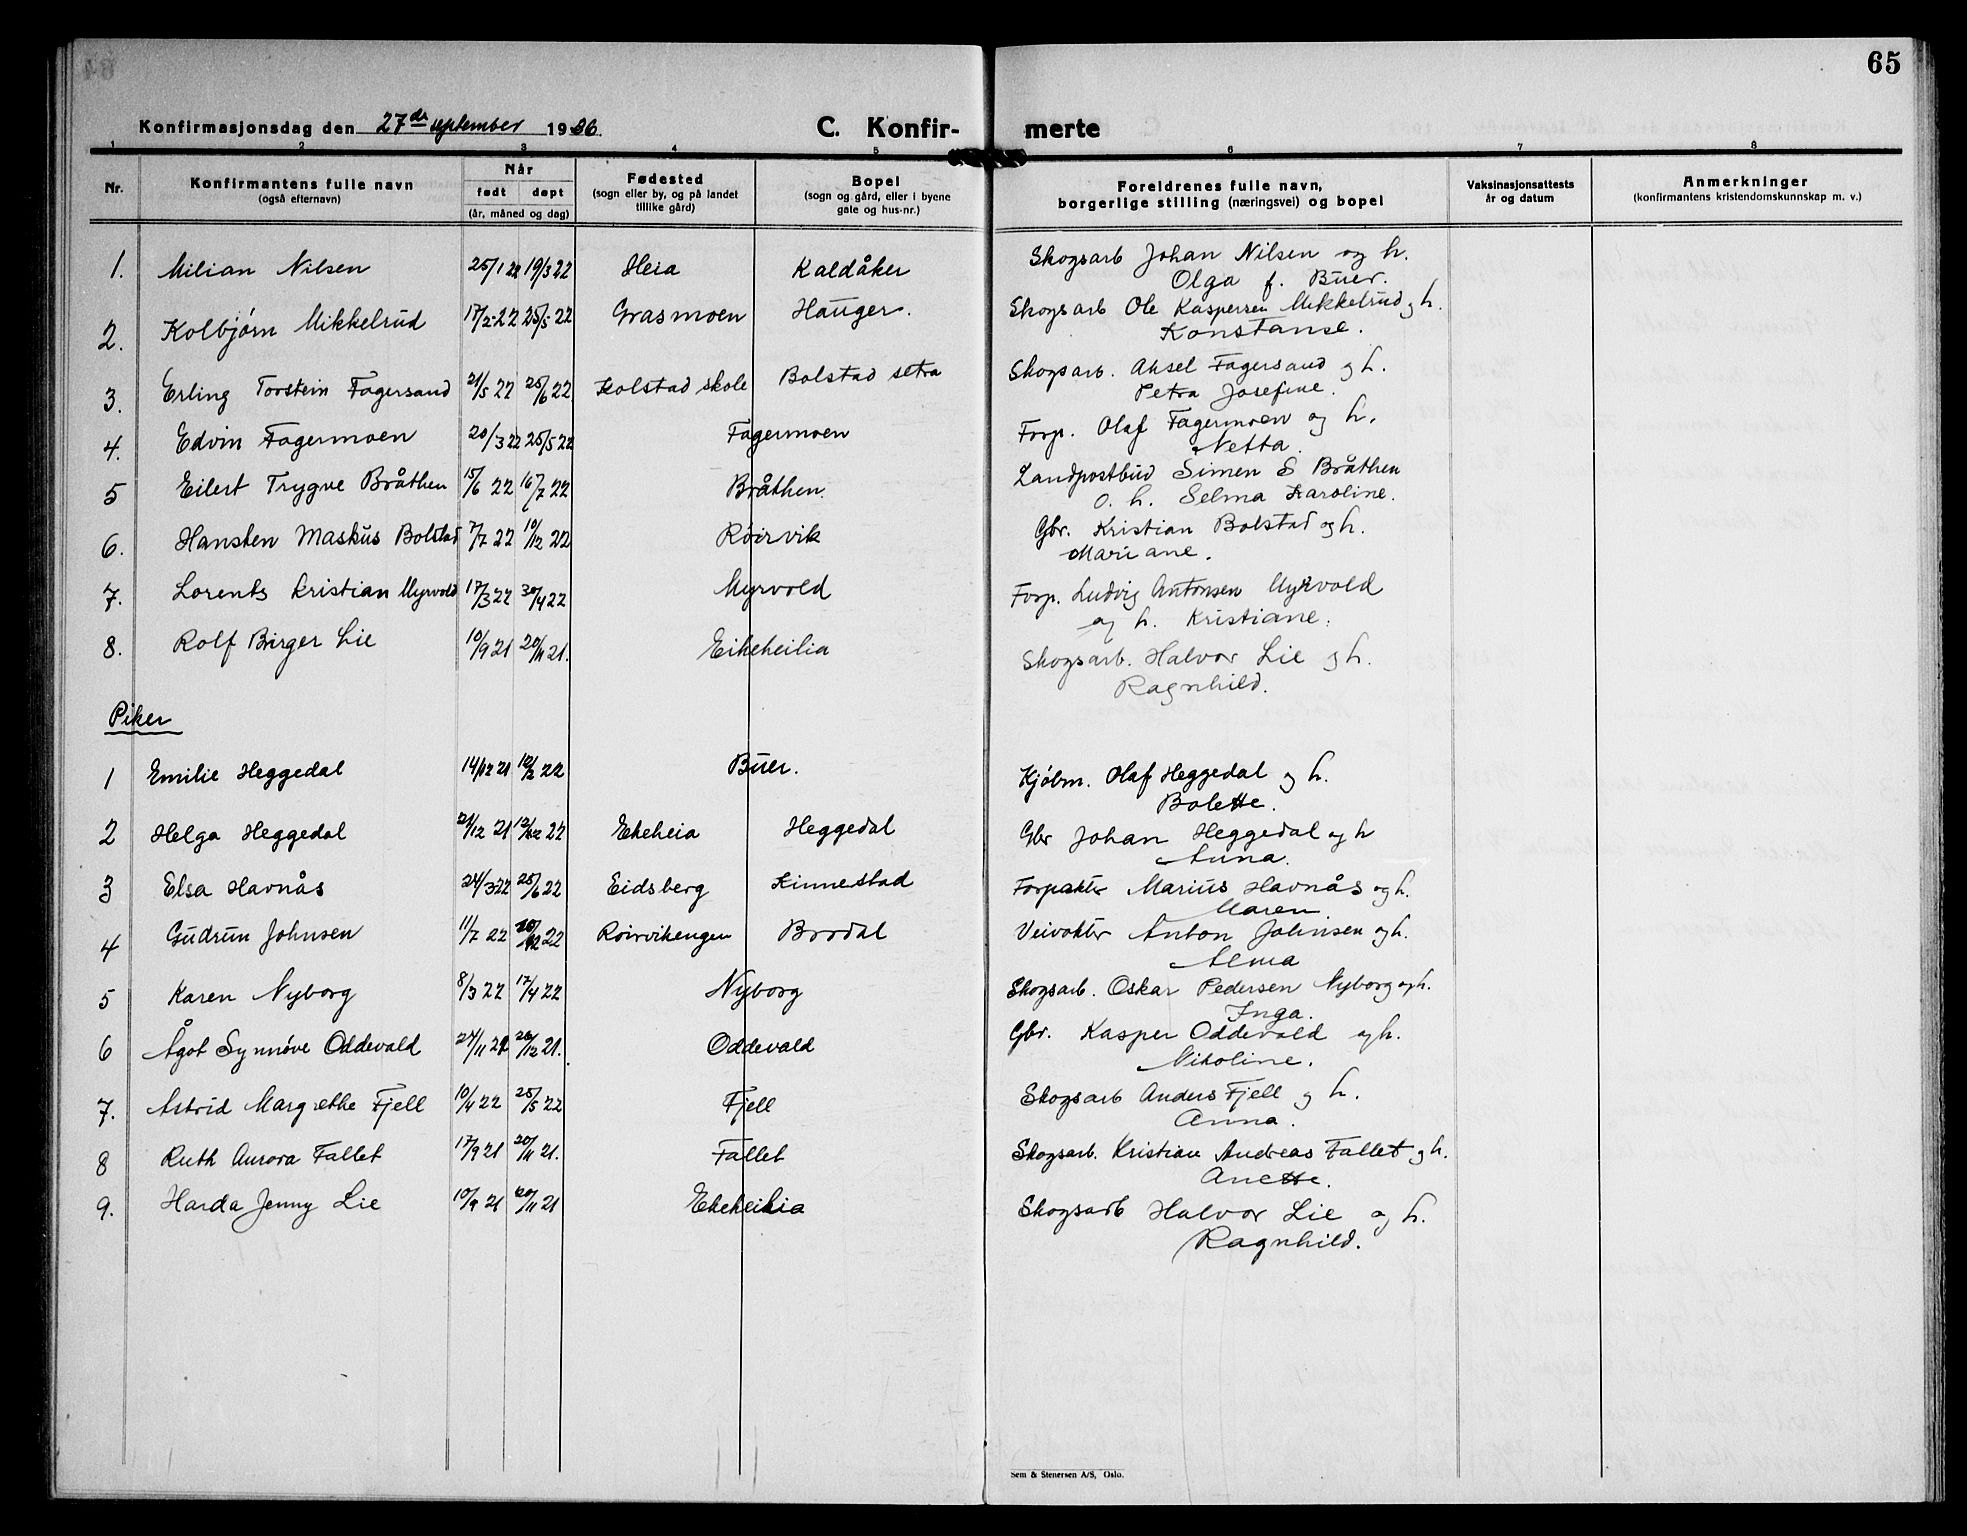 65
Konfirmasjonsdag den 27de september 1936. C. Konfir- merte
1 2 3 4 5 6 7 8
Nr. Konfirmantens fulle navn (også efternavn) Når født døpt (år, måned og dag) Fødested (sogn eller by, og på landet tillike gård) Bopel (sogn og gård, eller i byene gate og hus-nr.) Foreldrenes fulle navn, borgerlige stilling (næringsvei) og bopel Vaksinasjonsattests år og datum Anmerkninger (konfirmantens kristendomskunnskap m. v.)
1. Milian Nilsen 25/1 22 19/3 22 Heia Kaldåker Skogsarb Johan Nilsen og h.
Olga f. Buer.
2. Kolbjørn Mikkelrud 17/2 22 25/5 22 Grasmoen Hauger. Skogsarb Ole Kaspersen Mikkelrud og h.
Konstanse.
3. Erling Torstein Fagersand 21/5 22 25/6 22 Kolstad skole Bolstad setra Skogsarb. Aksel Fagersand og h.
Petra Josefine.
4. Edvin Fagermoen 20/3 22 25/5 22 Fagermoen Forp. Olaf Fagermoen og h.
Netta.
5 Eilert Trygve Bråthen 15/6 22 16/7 22 Bråthen. Landpostbud Simen S Bråthen
o. h. Selma Karoline.
6. Hansten Maskus Bolstad 7/7 22 10/12 22 Røirvik Gbr. Kristian Bolstad og h.
Mariane.
7. Lorents Kristian Myrvold 17/3 22 30/4 22 Myrvold Forp. Ludvig Antonsen Myrvold
og h. Kristiane.
8. Rolf Birger Lie 10/9 21 20/11 21. Eikeheilia Skogsarb. Halvor Lie og h.
Ragnhild.
Piker
1 Emilie Heggedal 14/12 21 12/2 22 Buer. Kjøbm. Olaf Heggedal og h.
Bolette.
2 Helga Heggedal 21/12 21 12/2 22 Ekeheia Heggedal Gbr Johan Heggedal og h
Anna.
3 Elsa Havnås 24/3 22 25/6 22 Eidsberg Kinnestad Forpakter Marius Havnås og h.
Maren
4 Gudrun Johnsen 11/7 22 10/12 22 Roirvikengen Brodal Veivokter Anton Johnsen og h.
Alma
5 Karen Nyborg 8/3 22 17/4 22 Nyborg Skogsarb. Oskar Pedersen Nyborg og h.
Inga.
6 Ågot Synnøve Oddevald 24/11 21 26/12 21. Oddevald Gbr. Kasper Oddevald og h.
Nikoline.
7. Astrid Margrethe Fjell 10/4 22 25/5 22 Fjell Skogsarb Anders Fjell og h.
Anna.
8 Ruth Aurora Fallet 17/9 21 20/11 21. Fallet Skogsarb. Kristian Andreas Fallet og h.
Anette.
9. Harda Jenny Lie 10/9 21 20/11 21 Ekeheilia Skogsarb Halvor Lie og h.
Ragnhild.
Sem & Stenersen A/S, Oslo.